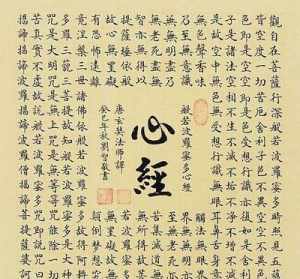 觀自在菩薩行深般若波羅蜜多時照見五蘊
皆空度一切苦厄舍利子色不異空空不異色
色即是空空即是色受想行識亦復如是舍利
子是諸法空相不生不滅不垢不淨不增不減
是故空中無色無受想行識無眼耳鼻舌身意
無色聲香味觸法無眼界
乃至無意識界無無明亦
無無明盡乃至無老死亦
無老死盡無苦集滅道無
智亦無得以無所得故菩
提薩埵依般若波羅蜜多
故心無罣礙無罣礙故無
有恐怖遠離顛倒夢想究
般若波羅蜜多心經
心經
唐玄奘法師譯
癸巳年秋劉智敬書
竟涅槃三世諸佛依般若波羅蜜多故得阿耨
多羅三藐三菩提故知般若波羅蜜多是大神
咒是大明咒是無上咒是無等等咒能除一切
苦真實不虛故說般若波羅蜜多咒即說咒曰
揭諦揭諦波羅揭諦波羅僧揭諦菩提